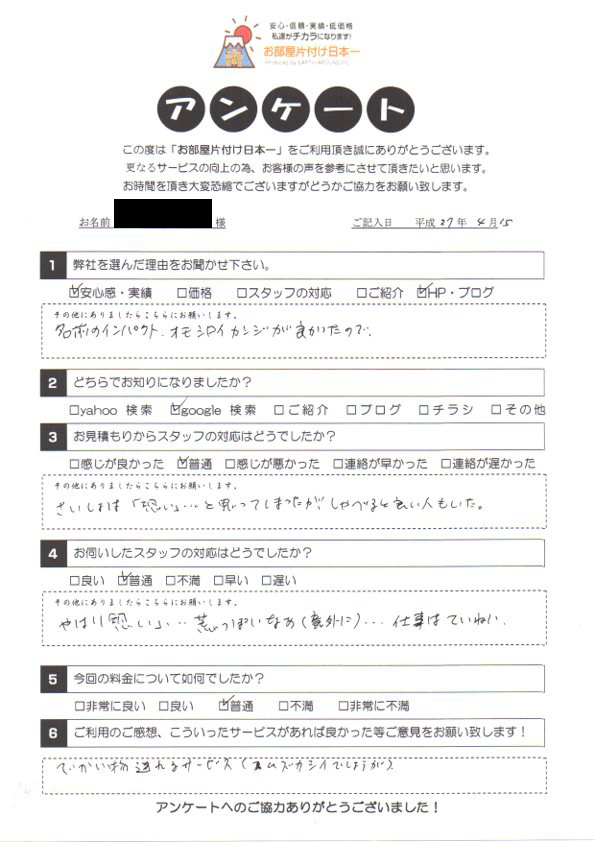 安心・信頼・実績・低価格
私達がチカラになります!
お部屋片付け日本一
Produced by EARTH AROUND CO
アンケート
この度は「お部屋片付け日本一」をご利用頂き誠にありがとうございます。
更なるサービスの向上の為、お客様の声を参考にさせて頂きたいと思います。
お時間を頂き大変恐縮でございますがどうかご協力をお願い致します。
お名前 様 ご記入日 平成27年 4月15
1 弊社を選んだ理由をお聞かせ下さい。
☑安心感・実績 □価格 □スタッフの対応 □ご紹介 ☑HP・ブログ
その他にありましたらこちらにお願いします。
名前のインパクト、オモシロイカンジが良かったので。
2 どちらでお知りになりましたか?
□yahoo 検索 ☑google 検索 □ご紹介 □ブログ □チラシ □その他
3 お見積もりからスタッフの対応はどうでしたか?
□感じが良かった ☑普通 □感じが悪かった □連絡が早かった □連絡が遅かった
その他にありましたらこちらにお願いします。
さいしょは「恐い」…と思ってしまったが しゃべると良い人もいた。
4 お伺いしたスタッフの対応はどうでしたか?
□良い ☑普通 □不満 □早い □遅い
その他にありましたらこちらにお願いします。
やはり「恐い」… 荒っぽいなあ(意外に)… 仕事はていねい
5 今回の料金について如何でしたか?
□非常に良い □良い ☑普通 □不満 □非常に不満
6 ご利用のご感想、こういったサービスがあれば良かった等ご意見をお願い致します!
でかい物送れるサービス(ムズカシイでしょうが)
アンケートへのご協力ありがとうございました!